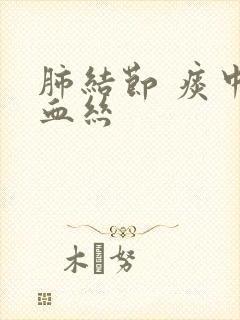 肺結節 痰中
血絲
木 努